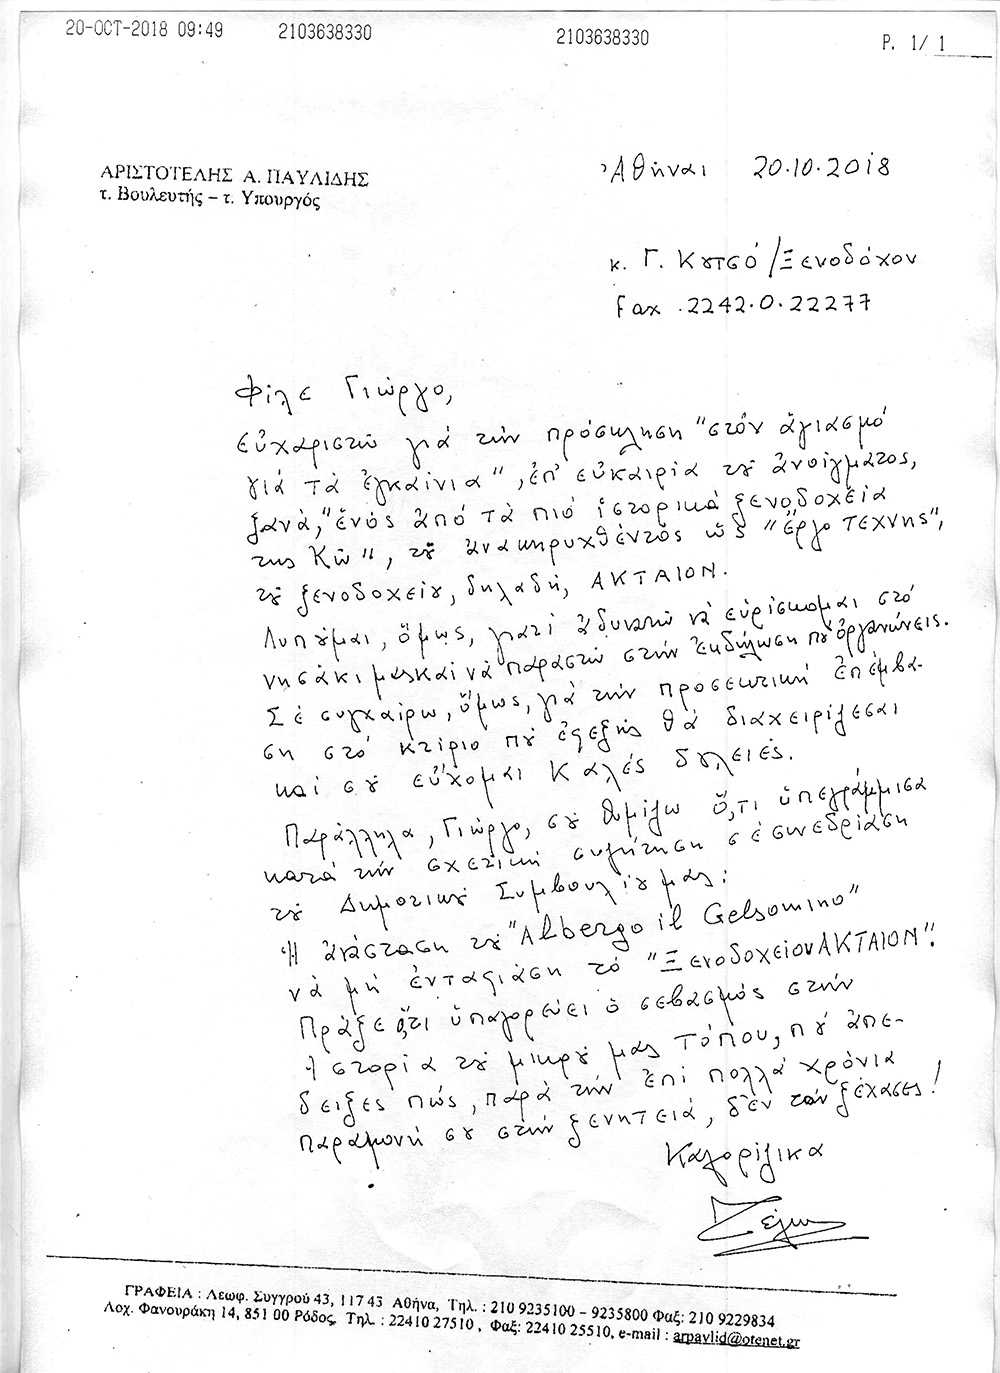 20-OCT-2018 09:49 2103638330 2103638330 P. 1/ 1
ΑΡΙΣΤΟΤΕΛΗΣ Α. ΠΑΥΛΙΔΗΣ
τ. Βουλευτής – τ. Υπουργός
Ἀθήναι 20.10.2018
κ. Γ. Κȣτσό/Ξενοδόχον
Fax .2242.0.22277
Φίλε Γιώργο,
εὐχαριστῶ γιά τήν πρόσκληση "στόν ἁγιασμό
γιά τά ἐγκαίνια", ἐπ' εὐκαιρία τȣ ἀνοίγματος,
ξανά, "ἑνός ἀπό τά πιό ἱστορικά ξενοδοχεῖα
της Κῶ", τȣ ἀνακηρυχθέντος ὡς "ἔργο ΤΕΧΝΗς",
τȣ ξενοδοχείȣ, δηλαδή, ΑΚΤΑΙΟΝ.
Λυπȣμαι, ὅμως, γιατί ἀδυνατῶ νά εὑρίσκομαι στό
νησάκι μας και νά παραστῶ στήν ἐκδήλωση πȣ ὀργανώνεις.
Σέ συγχαίρω, ὅμως, γιά τήν προσεκτική ἐπέμβα-
ση στό κτίριο πȣ ἐφεξῆς θά διαχειρίζεσαι
καί σȣ εὔχομαι Καλές δȣλειές.
Παράλληλα, Γιώργο, σȣ θυμίζω ὅ,τι ὑπεγράμμισα
κατά τήν σχετική συζήτηση σέ συνεδρίαση
τȣ Δημοτικȣ Συμβουλίȣ μας:
Ἡ ἀνάσταση τȣ "Albergo il Gelsomino"
νά μή ἐνταφιάση τό "Ξενοδοχείον ΑΚΤΑΙΟΝ".
Πρᾶξε ὅ,τι ὑπαγορεύει ὁ σεβασμός στήν
Ἱστορία τȣ μικρȣ μας τόπου, πȣ ἀπε-
δειξες πώς, παρά τήν ἐπί πολλά χρόνια
παραμονή σȣ στήν ξενητειά, δέν τόν ξέχασες!
ΓΡΑΦΕΙΑ : Λεωφ. Συγγρού 43, 117 43 Αθήνα, Τηλ. : 210 9235100 – 9235800 Φαξ: 210 9229834
Λοχ. Φανουράκη 14, 851 00 Ρόδος, Τηλ. : 22410 27510 , Φαξ: 22410 25510, e-mail : arpavlid@otenet.gr